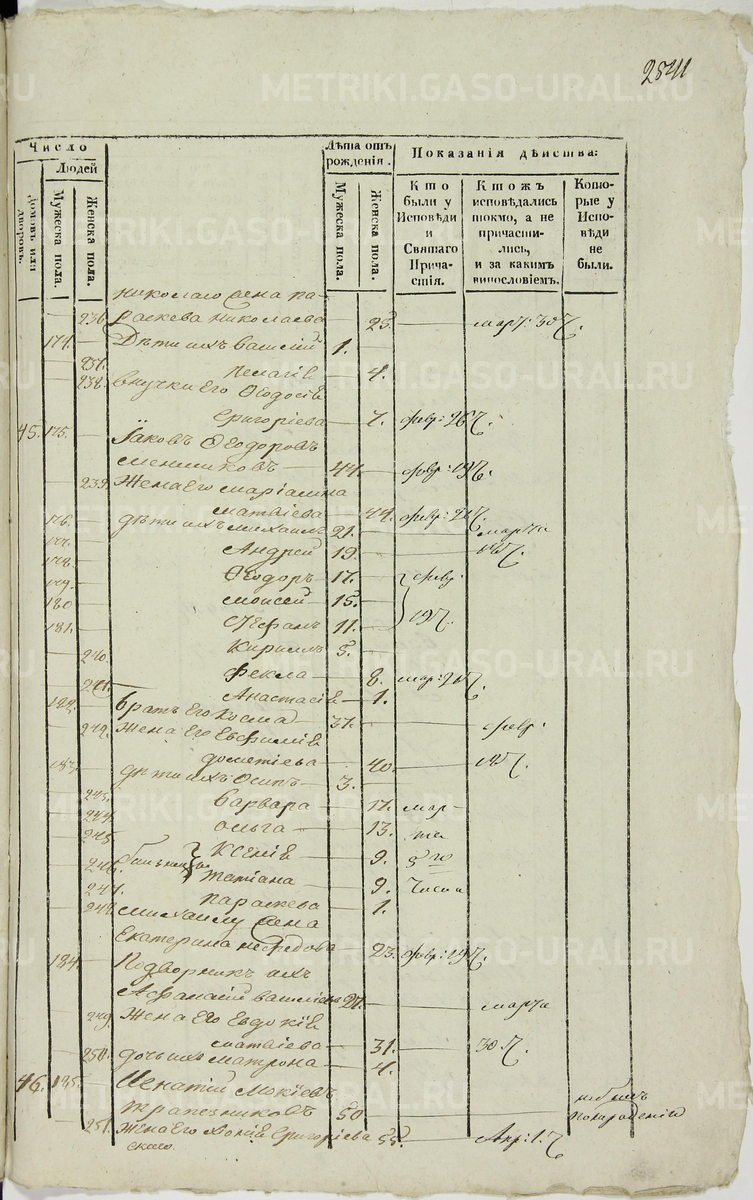 2541
METRIKI.GASO-URAL.RU
Число
Людей
Домовъ или дворовъ.
Мужеска пола.
Женска пола.
Лѣта отъ рожденія.
Мужеска пола.
Женска пола.
Показанія дѣйства:
Кто были у Исповѣди и Святаго Причастія.
Ктожъ исповѣдались токмо, а не причастились, и за какимъ винословіемъ.
Которые у Исповѣди не были.
Николаю жена Па-
236. раскева Николаева 23. мар: 30 ч.
174. Дѣти ихъ Василий 1.
237. Пелагѣя 4.
238. внучки Его Ѳеодосія
Григоріева 7. февр: 26 ч.
45. 175. Іаковъ Ѳеодоровъ
Меншиковъ 44. февр: 19 ч.
239. Жена Его Маріамна
Матвіева 44. февр: 26 ч.
176. дѣти ихъ Михаилъ 21. марта
177. Андрей 19.
178. Ѳеодоръ 17. февр.
179. Моисей 15.
180 Стефанъ 11. 19 ч.
181. Кириллъ 5.
240. Фекла 8. мар:
241. Анастасія 1.
182. братъ Его Косма 37. февр.
242. Жена Его Евфимія
40.
183. дѣти ихъ Осипъ 3.
243. Варвара 17. мар-
244. Ольга 13. та
245 Ксенія 9. 5 го
246. близницы Татіана 9. Числа
247. Параскева 1.
248. Михаилу жена
Екатерина Нефедова 23. февр: 19 ч.
184. Подворникъ ихъ
Афанасій Василіевъ 27. марта
249. Жена Его Евдокія
Матвіева 31. 30 ч.
250. дочь ихъ Матрона 4.
46. 185. Игнатій Мокіевъ
Трапезниковъ 50
251. Жена Его Григоріева 55. Апр: 1. ч